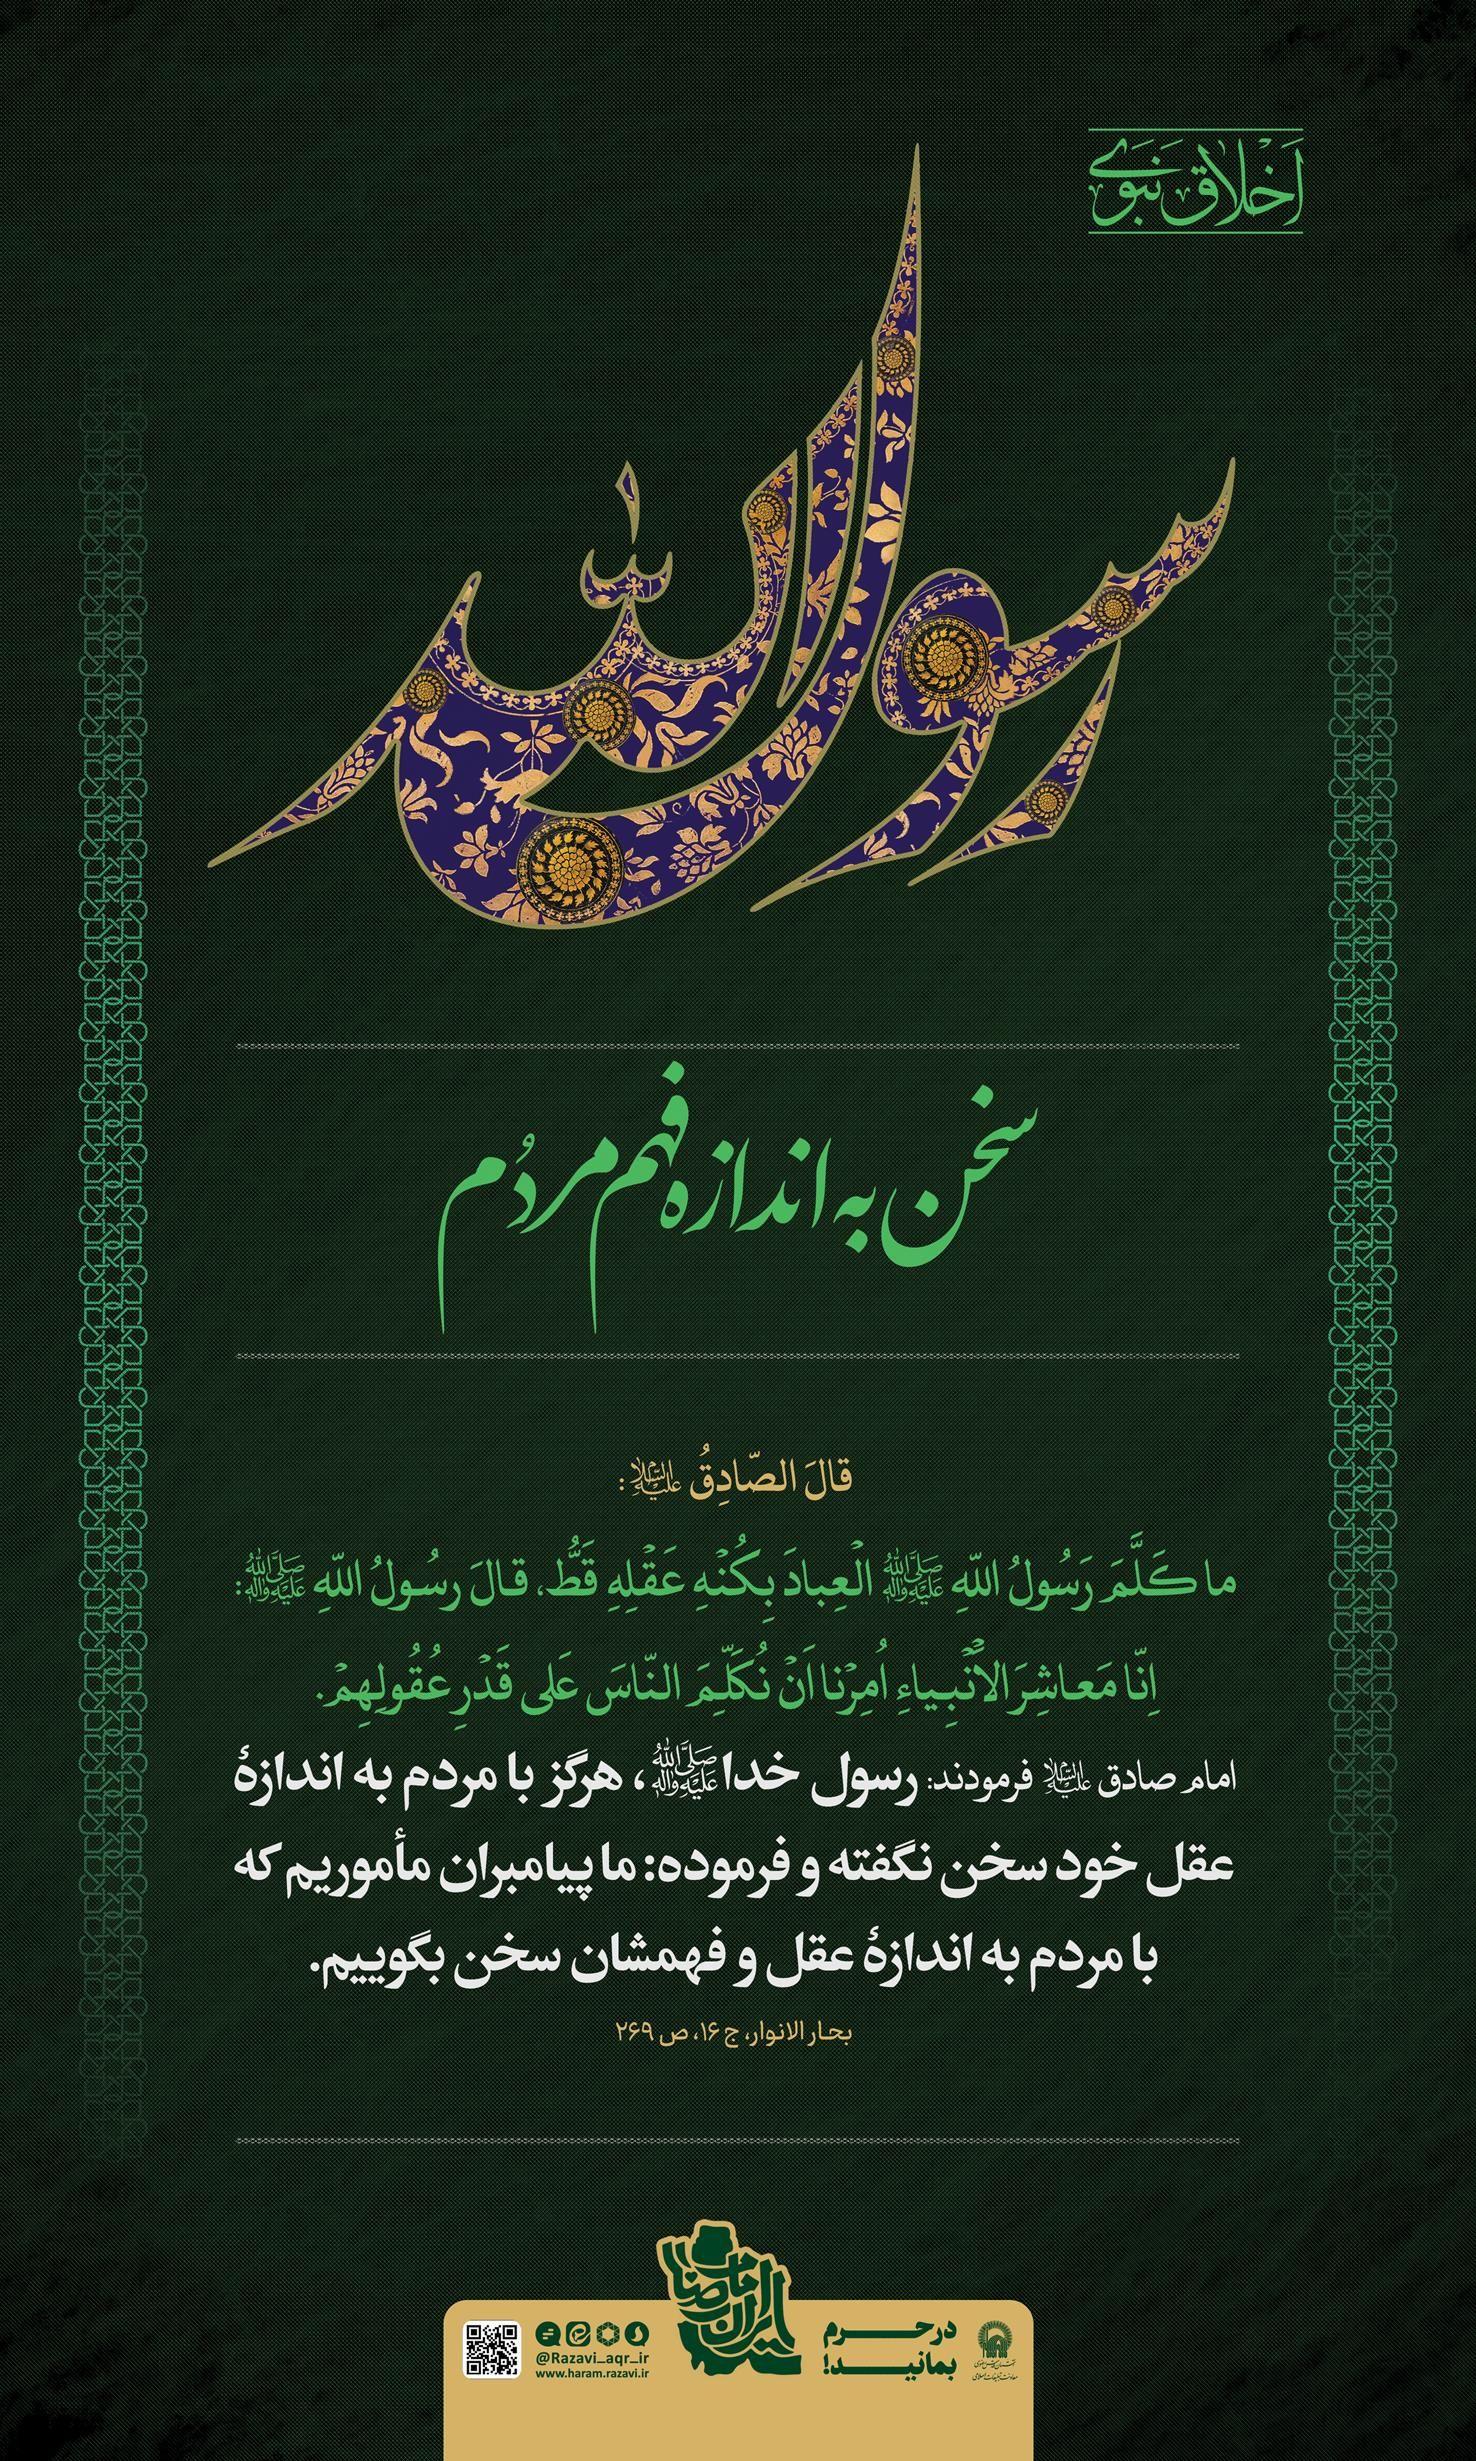 اَخلاق نبوی
رسول الله
سخن به اندازه فهم مردُم
قالَ الصّادِقُ علیه‌السلام:
ما کَلَّمَ رَسُولُ اللّهِ صَلَّى اللّٰهُ عَلَيْهِ وَآلِهِ الْعِبادَ بِکُنْهِ عَقْلِهِ قَطُّ، قالَ رسُولُ اللّهِ صَلَّى اللّٰهُ عَلَيْهِ وَآلِهِ:
اِنّا مَعاشِرَ الْاَنْبِیاءِ اُمِرْنا اَنْ نُکَلِّمَ النّاسَ عَلی قَدْرِ عُقُولِهِمْ.
امام صادق علیه‌السلام فرمودند: رسول خدا صَلَّى اللّٰهُ عَلَيْهِ وَآلِهِ، هرگز با مردم به اندازهٔ
عقل خود سخن نگفته و فرموده: ما پیامبران مأموریم که
با مردم به اندازهٔ عقل و فهمشان سخن بگوییم.
بحار الانوار، ج ۱۶، ص ۲۶۹
ایران امام رضا
در حرم
بمانید!
@Razavi_aqr_ir
www.haram.razavi.ir